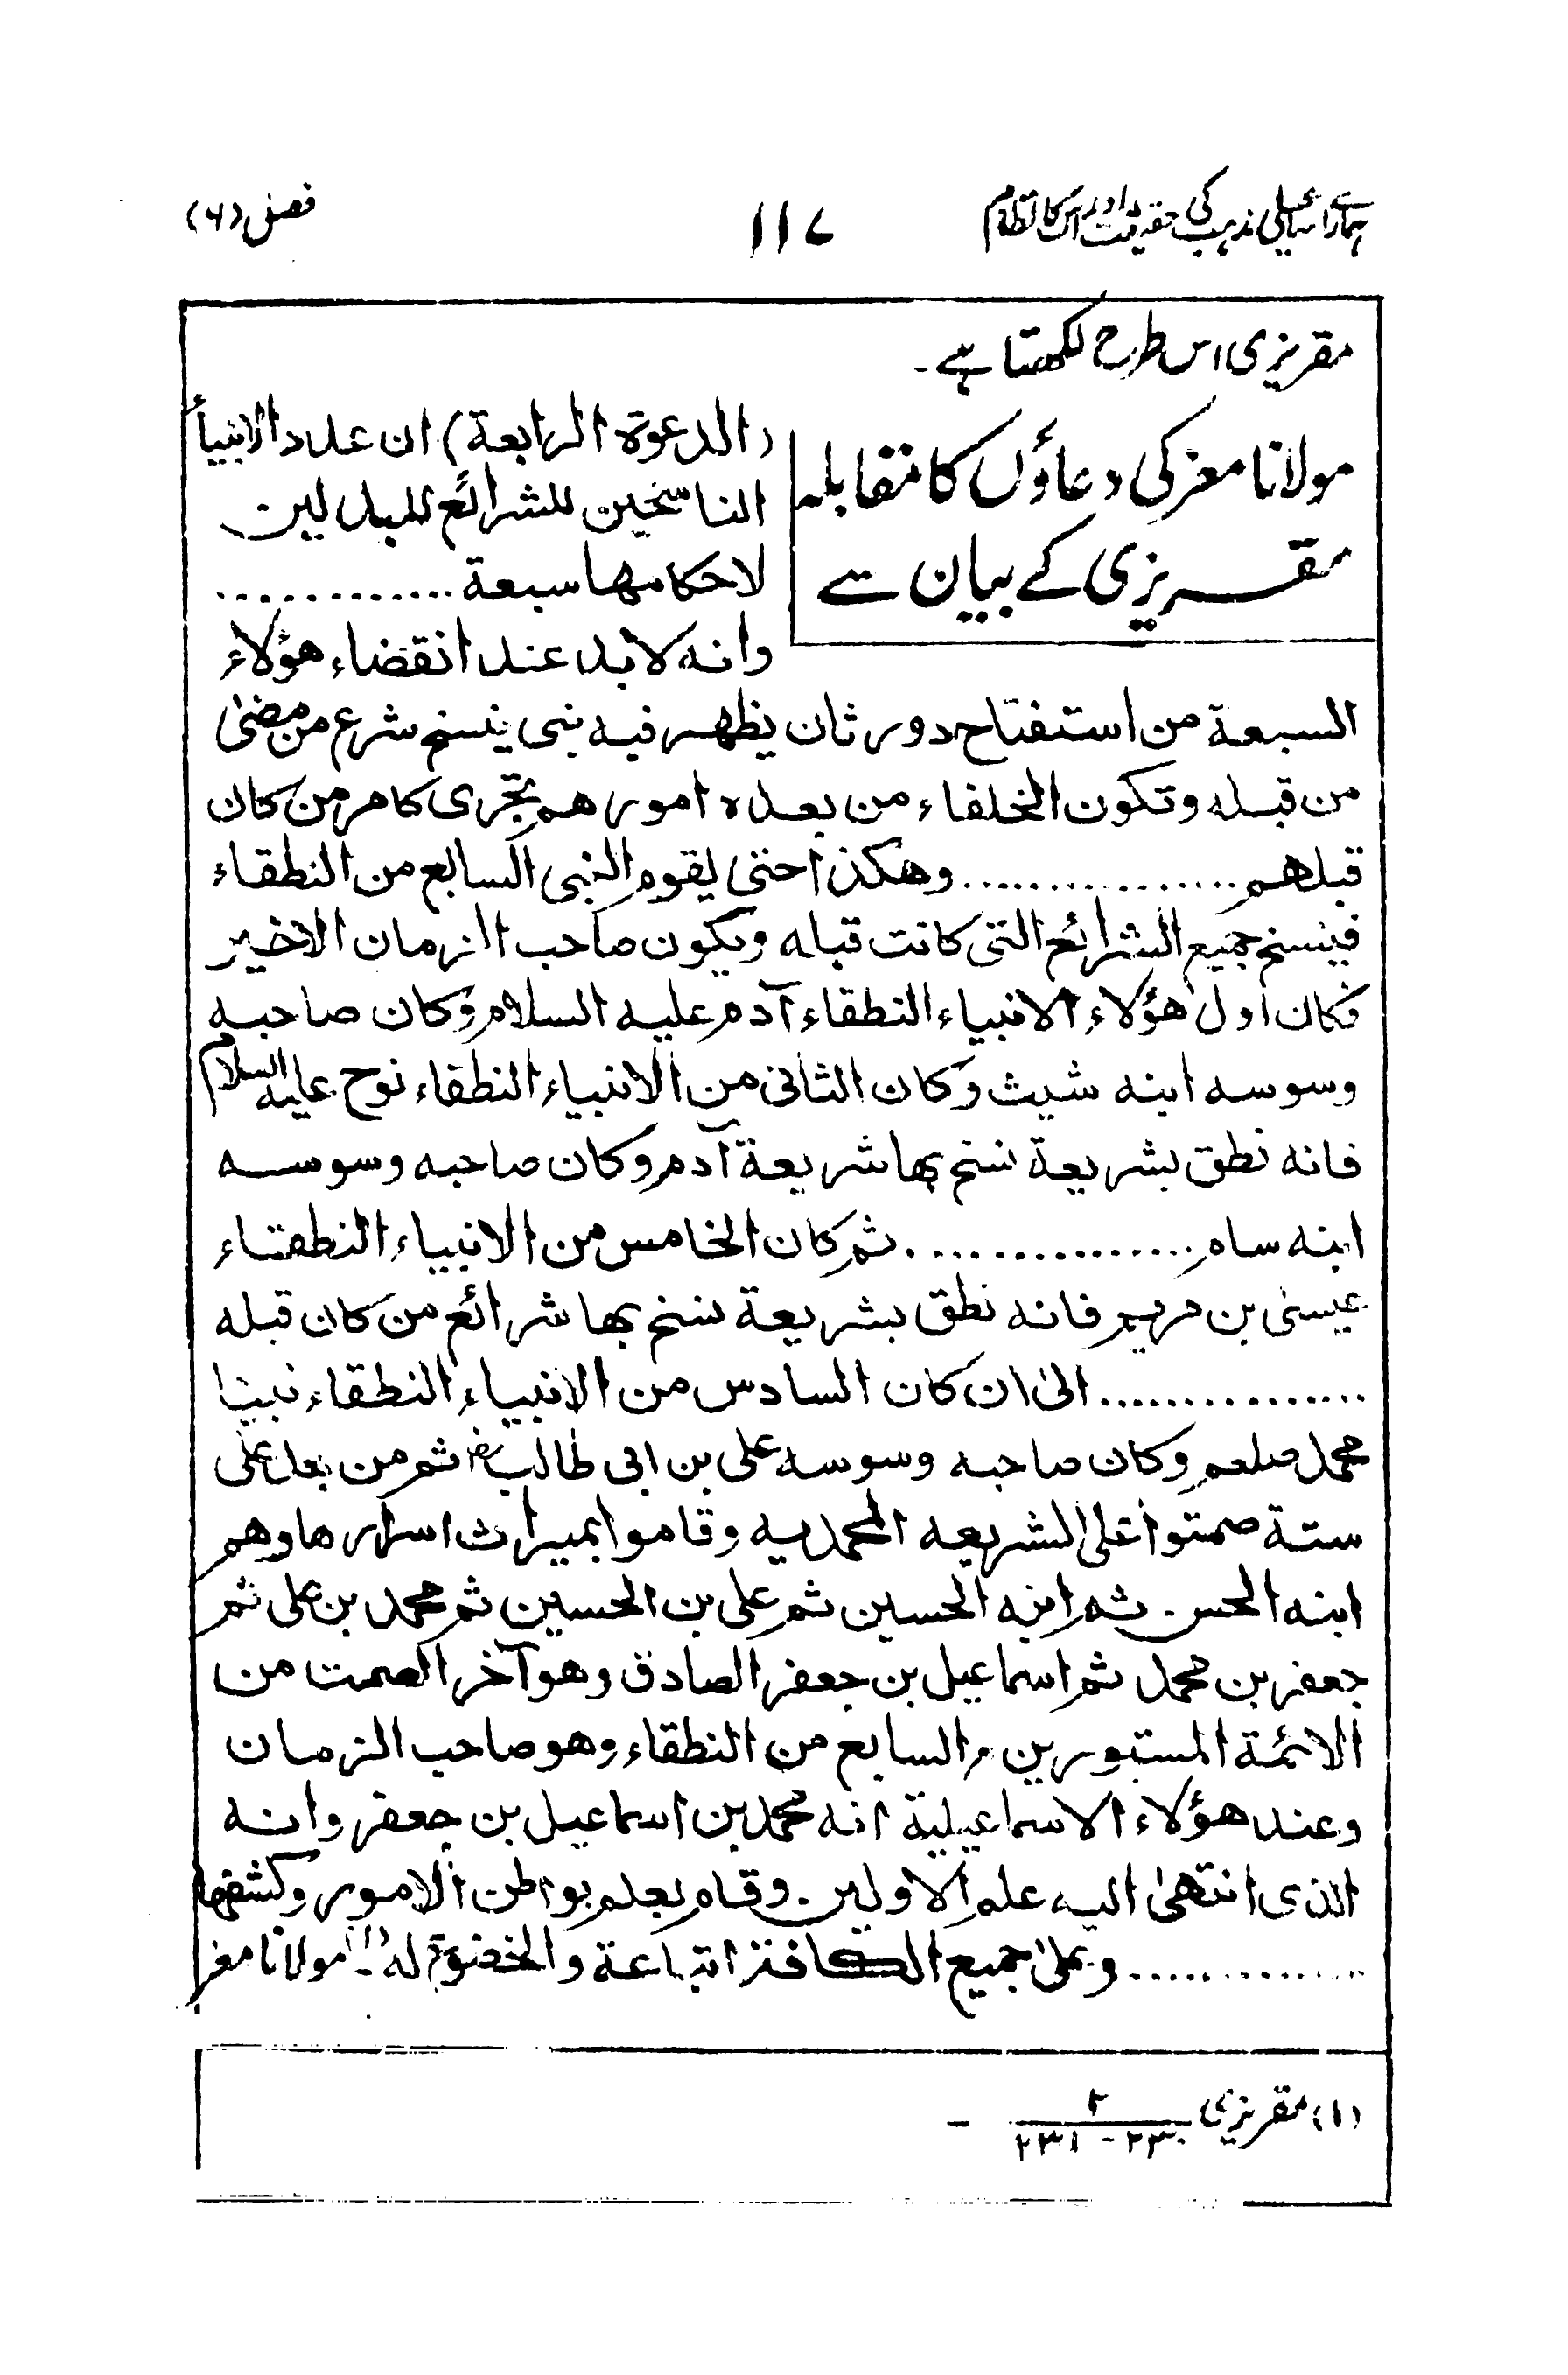 ہمارے اسماعیلی مذہب کی حقیقت اور اس کا نظام
۱۱۷
فصل (۶)
مقریزی اس طرح لکھتا ہے ۔
مولانا معز کی دعاؤں کا مقابلہ
مقریزی کے بیان سے
(الدعوة الرابعة) ان عدد الانبیأ
الناسخین للشرائع المبدلین
لاحکامھا سبعة .............
وانه لابد عند انقضاء هؤلاء
السبعة من استفتاح دور ثان یظھر فیه نبی ینسخ شرع من مضیٰ
من قبله وتکون الخلفاء من بعدہ امورھم تجری کامر من کان
قبلھم ................ وھکذا حتی یقوم النبی السابع من النطقاء
فینسخ جمیع الشرائع التی کانت قبله ویکون صاحب الزمان الاخیر
فکان اول هؤلاء الانبیاء النطقاء آدم علیه السلام وکان صاحبه
وسوسه ابنه شیث وکان الثانی من الانبیاء النطقاء نوح علیه السلام
فانه نطق بشریعة نسخ بھا شریعة آدم وکان صاحبه وسوسه
ابنه سام ................ ثم کان الخامس من الانبیاء النطقاء
عیسیٰ بن مریم فانه نطق بشریعة نسخ بھا شرائع من کان قبله
................ الیٰ ان کان السادس من الانبیاء النطقاء نبینا
محمد صلعم وکان صاحبه وسوسه علی بن ابی طالب ثم من بعد علی
ستة صمتوا علی الشریعه المحمدیه وقاموا بمیراث اسرارھا وھم
ابنه الحسن ۔ ثم ابنه الحسین ثم علی بن الحسین ثم محمد بن علی ثم
جعفر بن محمد ثم اسماعیل بن جعفر الصادق وھو آخر الصمت من
الائمة المستورین والسابع من النطقاء وھو صاحب الزمان
وعند هؤلاء الاسماعیلیة انه محمد بن اسماعیل بن جعفر وانه
الذی انتھیٰ الیه علم الاولین ۔ وقام بعلم بواطن الامور وکشفھا
.............. وعلیٰ جمیع الکافة اتباعة والخضوع له ۔ (۱) مولانا معز
(۱) مقریزی ۲/۲۳۰-۲۳۱ ۔